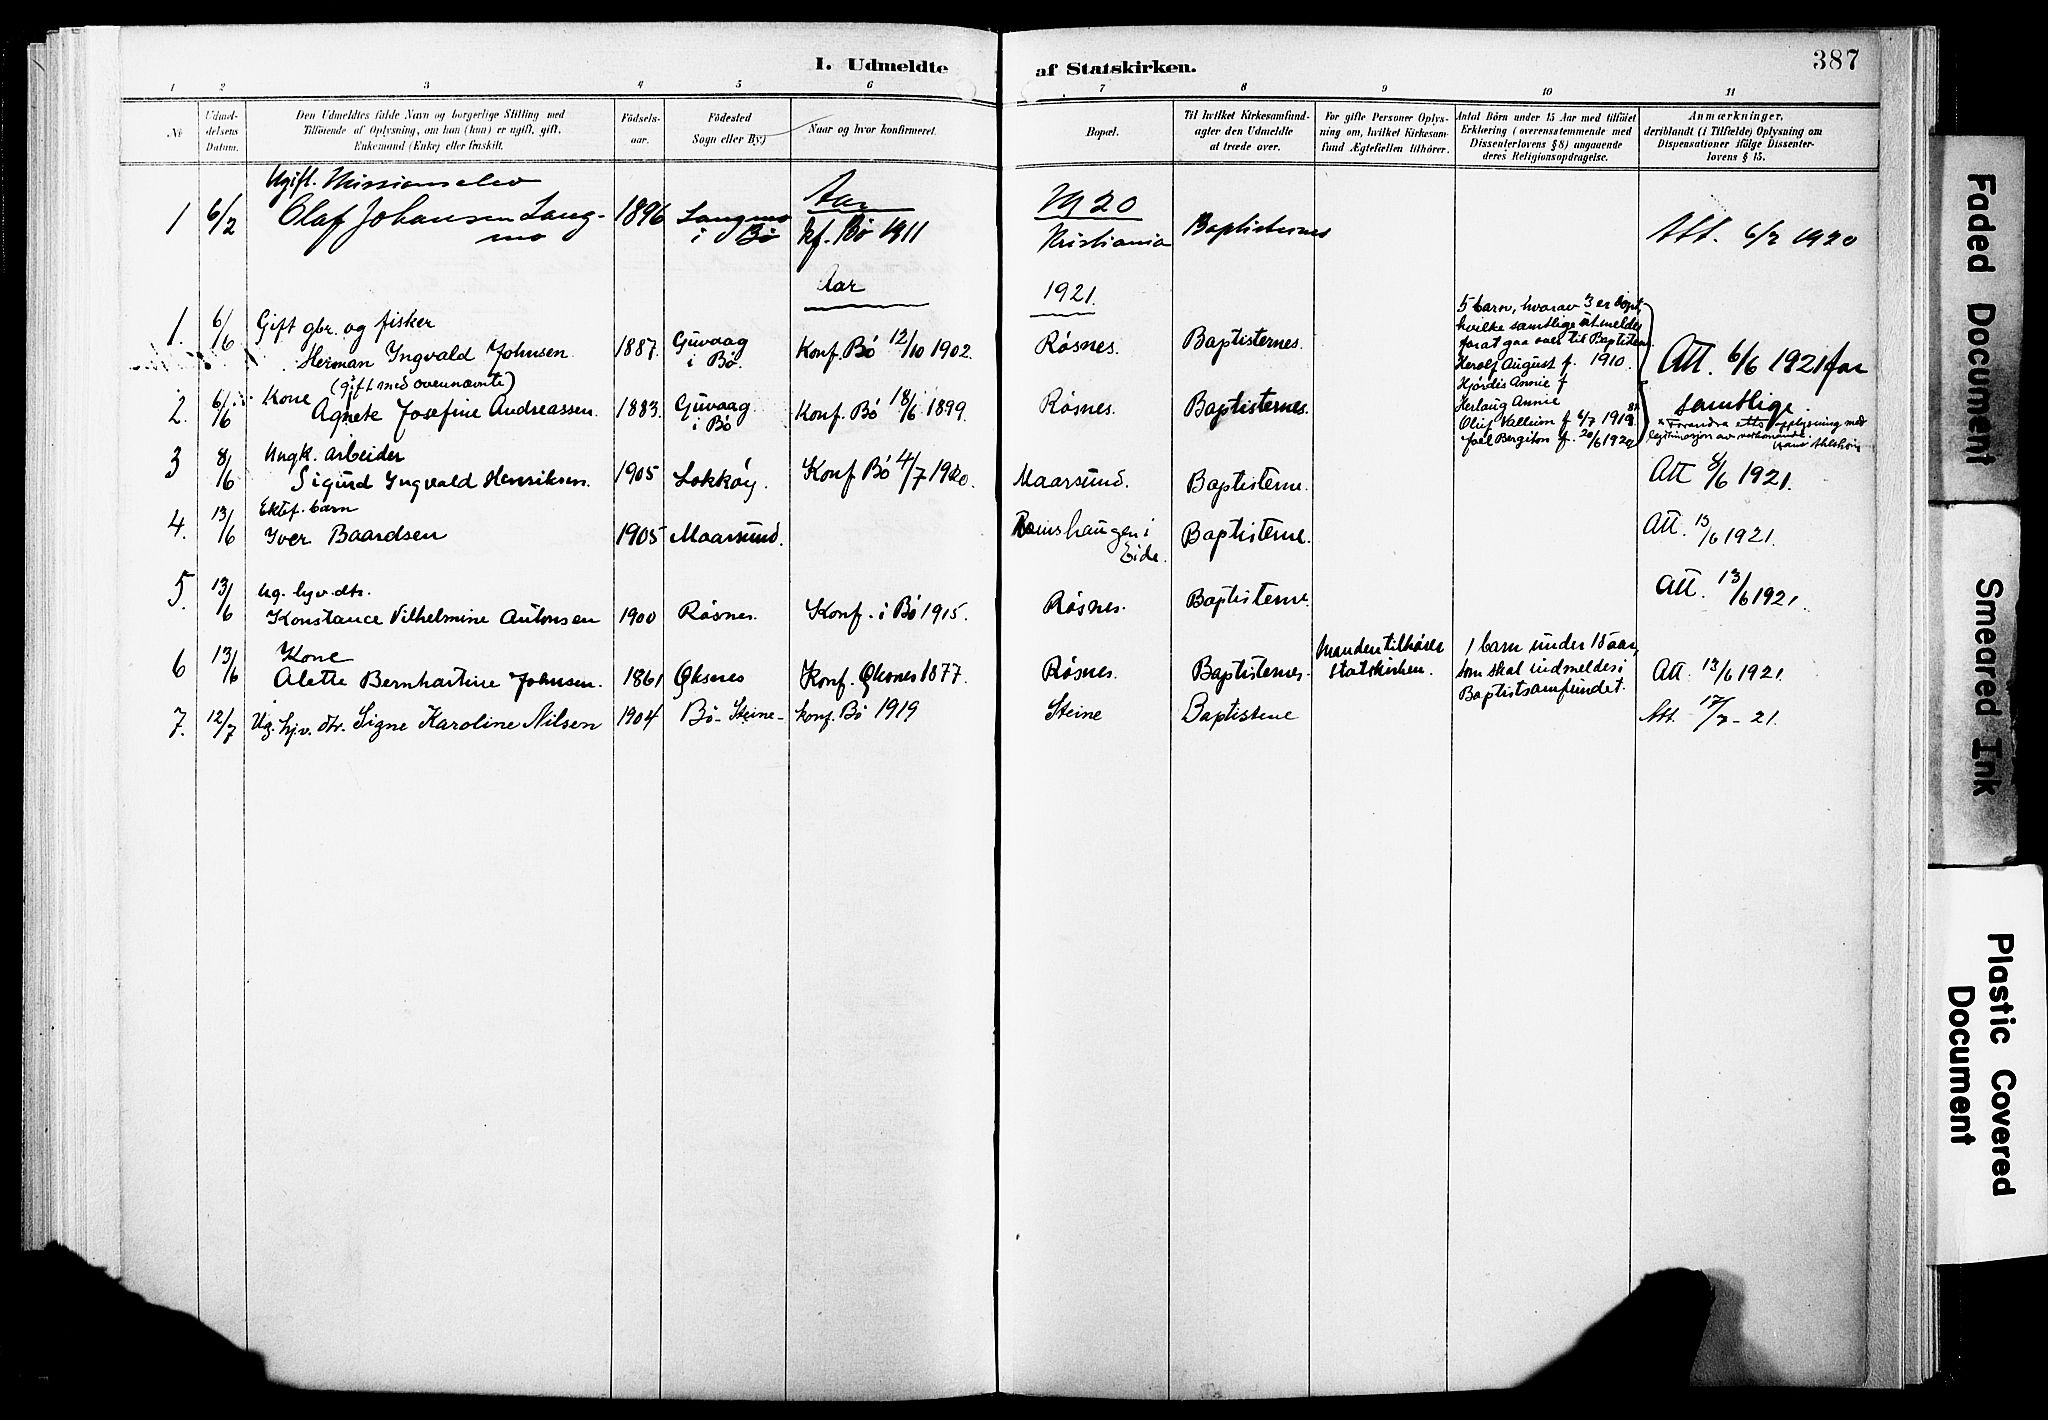 I. Udmeldte af Statskirken.
387
1 2 3 4 5 6 7 8 9 10 11
No
Udmel-
delsens
Datum.
Den Udmeldtes fulde Navn og borgerlige Stilling med
Tilföiende af Oplysning, om han (hun) er ugift, gift,
Enkemand (Enke) eller fraskilt.
Födsels-
aar.
Födested
(Sogn eller By)
Naar og hvor konfirmeret.
Bopæl.
Til hvilket Kirkesamfund-
agter den Udmeldte
at træde over.
For gifte Personer Oplys-
ning om, hvilket Kirkesam-
fund Ægtefællen tilhörer.
Antal Börn under 15 Aar med tilföiet
Erklæring (overensstemmende med
Dissenterlovens § 8) angaaende
deres Religionsopdragelse.
Anmærkninger,
deriblandt (i Tilfælde) Oplysning om
Dispensationer ifölge Dissenter-
lovens § 15.
Aar 1920
Ugift. Missionselev
1 6/2 Olaf Johansen Lang- 1896 Langmo kf. Bö 1911 Kristiania Baptisternes Att. 6/2 1920
mo i Bö
Aar 1921.
1. 6/6 Gift gbr. og fisker
Herman Ingvald Johnsen 1887. Guvaag Konf. Bö 12/10 1902. Røsnes. Baptisternes.
i Bø.
5 barn, hvorav 3 er døpt,
hvilke samtlige utmeldes
forat gaa over til Baptistern.
Herolf August f. 1910.
Hjördis Annie f
Herlaug Annie
Oluf Valleion f 6/7 1918
Joel Bergiton f. 20/6 1920
Att. 6/6 1921 for
samtlige.
(gift med ovennævnte)
2. 6/6 Kone Agnete Josefine Andreassen. 1883. Guvaag Konf. Bö 18/6 1899. Røsnes. Baptisternes.
i Bø
3 8/6 Ungk. arbeider
Sigurd Ingvald Henriksen. 1905 Lokköy. Konf Bö 4/7 1920. Maarsund. Baptisterne. Att 8/6 1921.
4. 13/6 Ektef. barn
Iver Baardsen 1905 Maarsund. Eide. Baptisterne. Att. 13/6 1921.
5. 13/6 Ug. hjv. dtr.
Konstance Vilhelmine Antonsen 1900 Røsnes. Konf. i Bö 1915. Røsnes. Baptisterne Att. 13/6 1921.
6 13/6 Kone
Alette Bernhartine Johnsen. 1861 Øksnes Konf. Øksnes 1877. Røsnes. Baptisternes.
Manden tilhører
statskirken.
1 barn under 15 aar,
som skal indmeldes i
Baptistsamfundet.
Att. 13/6 1921.
7. 12/7 Ug. hj.v. dtr. Signe Karoline Nilsen 1904 Bö - Steine - konf. Bö 1919 Steine Baptistene Att. 12/7 - 21.
Faded Document
Smeared Ink
Plastic Covered
Document